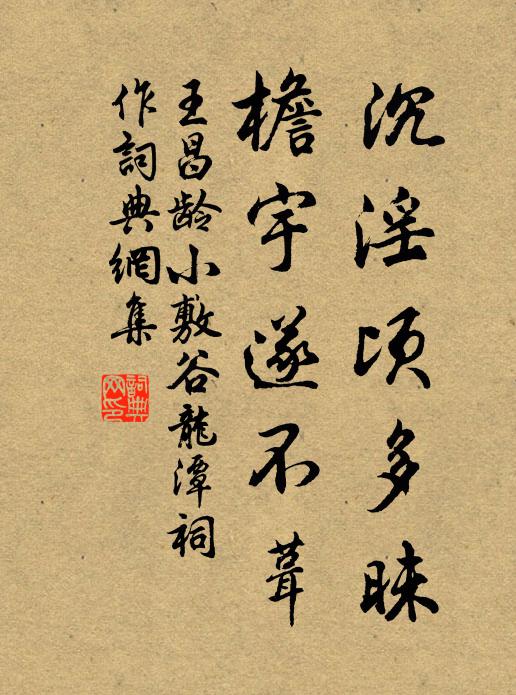 沉淫顷多昧
檐宇遂不葺
王昌龄小敷谷龍潭祠
作詞典網集
詞典網印